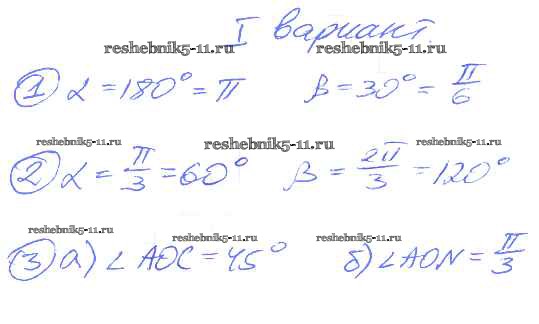 I вариант.
reshebnik5-11.ru reshebnik5-11.ru
① α = 180° = π β = 30° = π/6
reshebnik5-11.ru reshebnik5-11.ru reshebnik5-11.ru
② α = π/3 = 60° β = 2π/3 = 120°
reshebnik5-11.ru reshebnik5-11.ru reshebnik5-11.ru
③ а) ∠ AOC = 45° б) ∠ AON = π/3